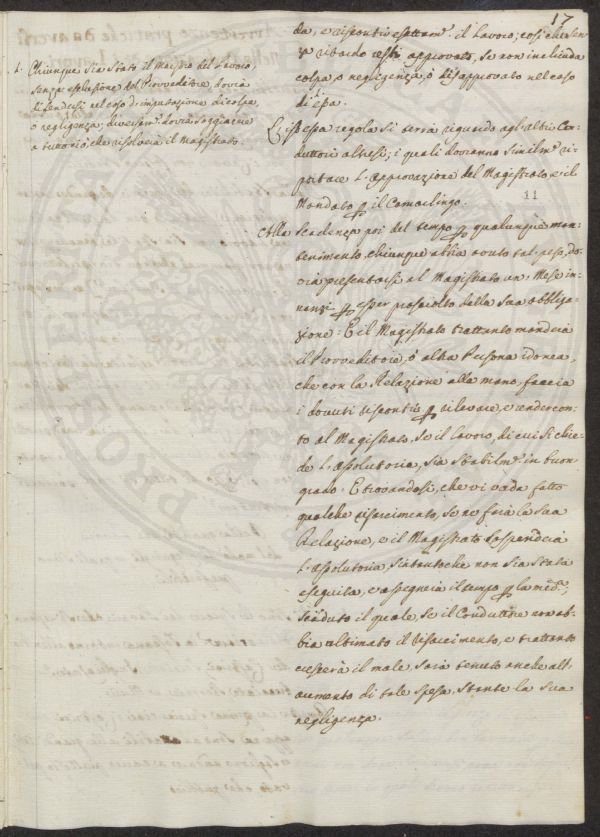 17
1. Chiunque sia stato il Maestro del Lavoro,
senza esclusione del Provveditore, dovrà
difendersi nel caso d'imputazione di colpa,
o negligenza; diversam.te dovrà soggiacere
a tutto ciò, che risolverà il Magistrato.
da, e riscontri esattam.te il Lavoro; così che sen-
za ritardo resti approvato, se non inclinda
colpa, o negligenza, o disapprovato nel caso
di epa.
L'istessa regola si terrà riguardo agl'altri Con-
duttori altresì; i quali dovranno similm.te ri-
portare l'approvazione del Magistrato e il
Mandato p il Camarlingo.
11
Alla scadenza poi del tempo p qualunque man-
tenimento, chiunque abbia avuto tal peso, do-
vrà presentarsi al Magistrato un Mese in-
nanzi p esser prosciolto dalla sua obbliga-
zione: E il Magistrato trattanto manderà
il Provveditore, o altra Persona idonea,
che con la Relazione alla mano, faccia
i dovuti riscontri p rilevare, e render con-
to al Magistrato, se il Lavoro, di cui si chie-
de l'Assolutoria, sia stabilm.te in buon
grado. E trovandosi, che vi vada fatto
qualche risarcimento, se ne farà la sua
Relazione, e il Magistrato sospenderà
l'Assolutoria, sintantoche non sia stata
eseguita, e assegnerà il tempo p la med.ma;
scaduto il quale, se il Conduttore non ab-
bia ultimato il risarcimento, e trattanto
crescerà il male, sarà tenuto anche all'
aumento di tale spesa, stante la sua
negligenza.